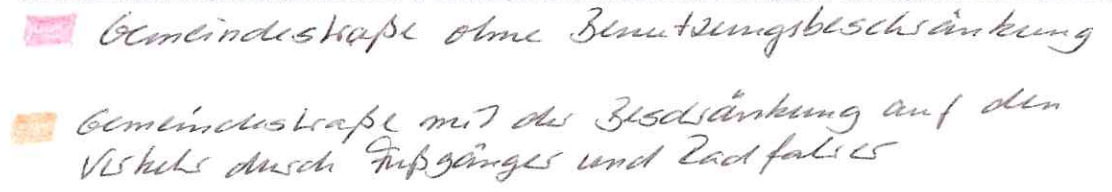 Gemeindestraße ohne Benutzungsbeschränkung
Gemeindestraße mit der Beschränkung auf den
Verkehr durch Fußgänger und Radfahrer